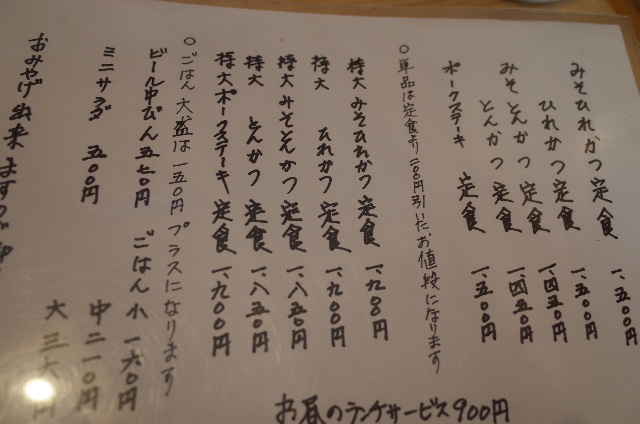 みそひれかつ定食 一、五〇〇円
ひれかつ定食 一、五〇〇円
みそとんかつ定食 一、四五〇円
とんかつ定食 一、四五〇円
ポークステーキ定食 一、五〇〇円
○単品は定食より二〇〇円引いたお値段になります
特大みそひれかつ定食 一、九〇〇円
特大ひれかつ定食 一、九〇〇円
特大みそとんかつ定食 一、八五〇円
特大とんかつ定食 一、八五〇円
特大ポークステーキ定食 一、九〇〇円
○ごはん大盛は一五〇円プラスになります
ビール中びん五七〇円 ごはん小一六〇円
ミニサラダ 五〇〇円 中二一〇円
おみやげ出来ますので 大三六〇円
お昼のランチサービス900円